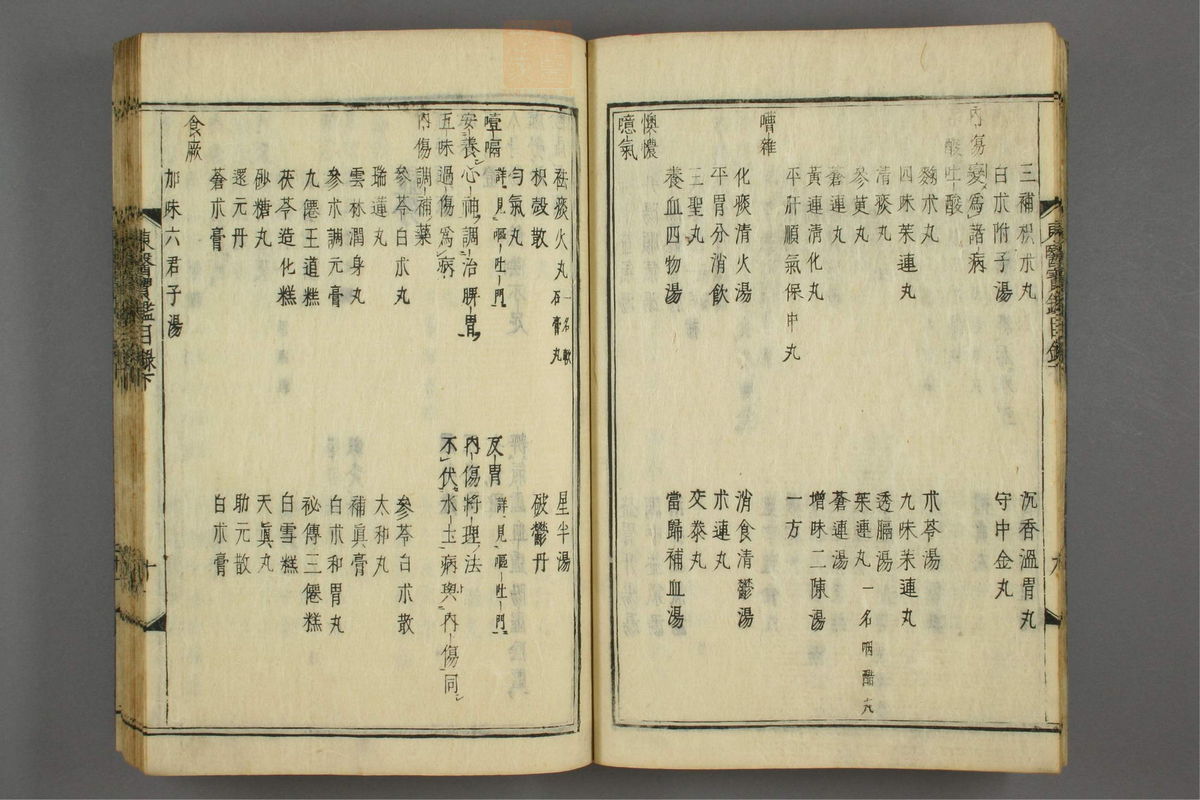 三補枳朮丸 沉香溫胃丸
白朮附子湯 守中金丸
內傷變爲諸病
吞酸吐酸
䴷朮丸 朮苓湯
四味茱連丸 九味茱連丸
清痰丸 透膈湯
參萸丸 茱連丸 一名咽醋丸
蒼連丸 蒼連湯
黃連清化丸 增味二陳湯
平肝順氣保中丸 一方
嘈雜
化痰清火湯 消食清鬱湯
平胃分消飲 朮連丸
三聖丸 交泰丸
養血四物湯 當歸補血湯
懊憹
噫氣
祛痰火丸 一名軟石膏丸 星半湯
枳殼散 破鬱丹
勻氣丸
噎膈 詳見嘔吐門 反胃 詳見嘔吐門
安養心神調治脾胃 內傷將理法
五味過傷爲病 不伏水土病與內傷同
內傷調補藥
參苓白朮丸 參苓白朮散
瑞蓮丸 太和丸
雲林潤身丸 補眞膏
參朮調元膏 白朮和胃丸
九僊王道糕 祕傳三僊糕
茯苓造化糕 白雪糕
砂糖丸 天眞丸
還元丹 助元散
蒼朮膏 白朮膏
食厥
加味六君子湯
東醫寶鑑目錄下 十
東醫寶鑑目錄 九